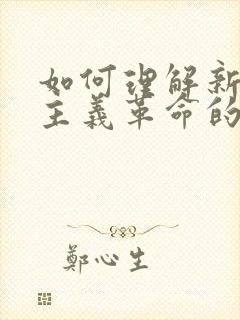 如何理解新
主義革命的
鄭心生